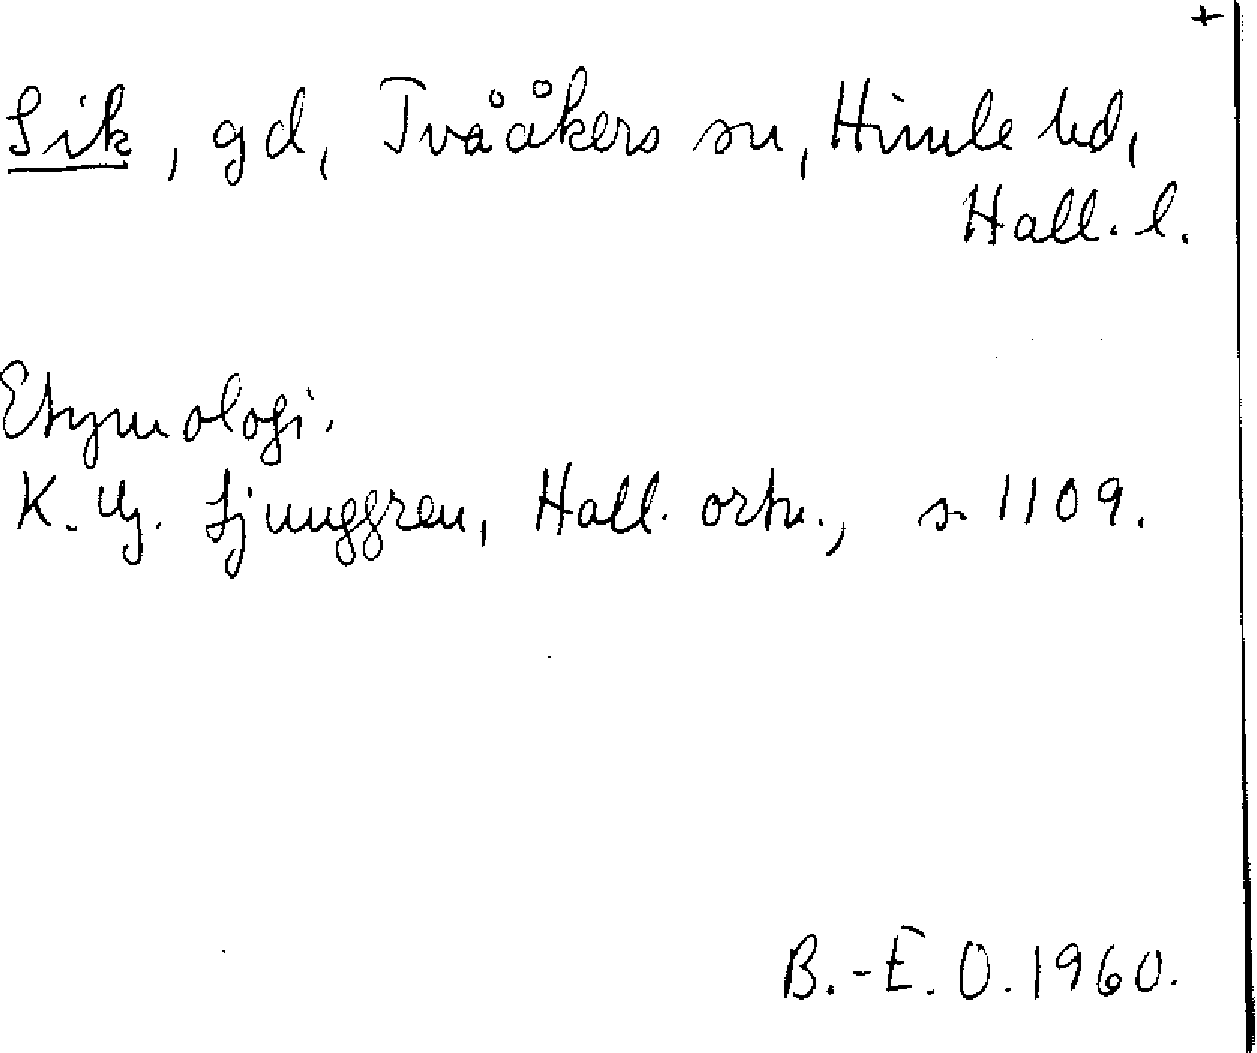 +
Sik, gd, Tvååkers sn, Himle hd,
Hall. l.
Etymologi.
K. G. Ljunggren, Hall. ortn., s. 1109.
B.-E. O. 1960.